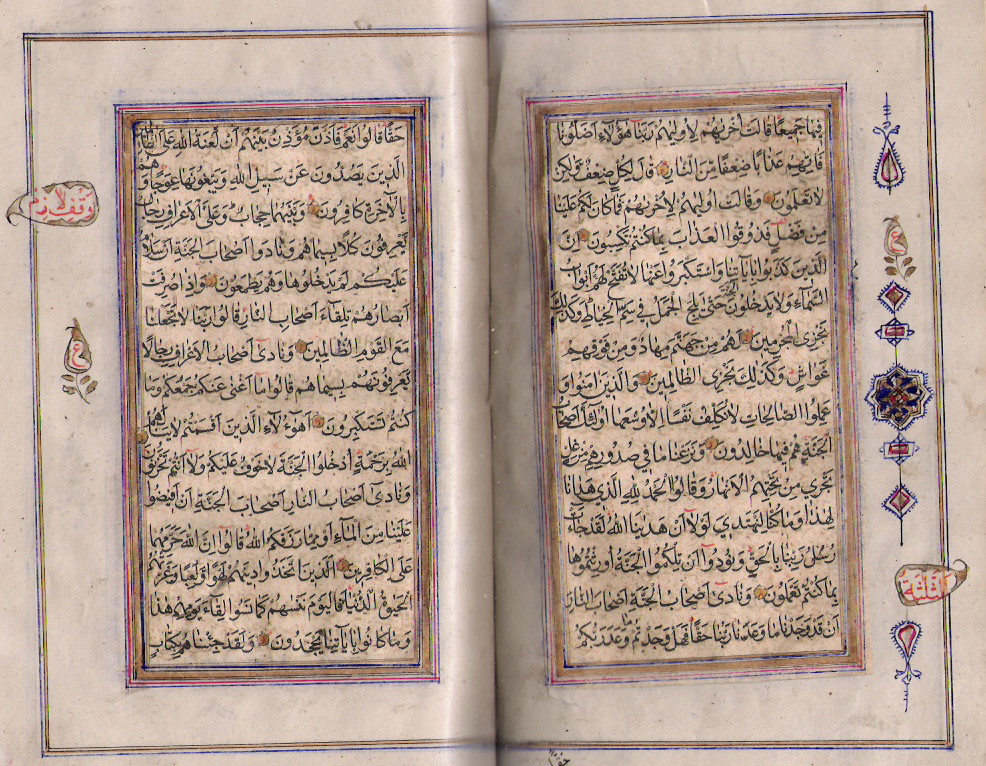 فيها جميعا قالت أخريهم لاوليهم ربنا هؤلاء اضلونا
فاتهم عذابا ضعفا من النار قال لكل ضعف ولكن
لا تعلمون وقالت اوليهم لاخريهم فما كان لكم علينا
من فضل فذوقوا العذاب بما كنتم تكسبون ان
الذين كذبوا باياتنا واستكبروا عنها لا تفتح لهم أبواب
السماء ولا يدخلون الجنة حتى يلج الجمل في سم الخياط وكذلك
نجزى المجرمين لهم من جهنم مهاد ومن فوقهم
غواش وكذلك نجزى الظالمين والذين امنوا و
عملوا الصالحات لا نكلف نفسا الا وسعها اولئك اصحاب
الجنة هم فيها خالدون ونزعنا ما في صدورهم من غل
تجري من تحتهم الانهار وقالوا الحمد لله الذي هدانا
لهذا وما كنا لنهتدي لولا ان هدينا الله لقد جاءت
رسل ربنا بالحق ونودوا أن تلكموا الجنة أورثتموها
بما كنتم تعملون ونادى أصحاب الجنة اصحاب النار
ان قد وجدنا ما وعدنا ربنا حقا فهل وجدتم ما وعد ربكم
ع
الثلثة
حقا قالوا نعم فاذن مؤذن بينهم ان لعنة الله على الظا
لذين يصدون عن سبيل الله ويبغونها عوجا وهم
بالاخرة كافرون وبينهما حجاب وعلى الاعراف رجال
يعرفون كلا بسيماهم ونادوا اصحاب الجنة ان سلام
عليكم لم يدخلوها وهم يطمعون واذا صرفت
ابصارهم تلقاء اصحاب النار قالوا ربنا لا تجعلنا
مع القوم الظالمين ونادى اصحاب الاعراف رجالا
يعرفونهم بسيماهم قالوا ما أغنى عنكم جمعكم وما
كنتم تستكبرون اهؤلاء الذين اقسمتم لا ينالهم
الله برحمة أدخلوا الجنة لا خوف عليكم ولا انتم تحزنون
ونادى اصحاب النار اصحاب الجنة ان افيضوا
علينا من الماء أو مما رزقكم الله قالوا ان الله حرمهما
على الكافرين الذين اتخذوا دينهم لهوا ولعبا وغرتهم
الحيوة الدنيا فاليوم ننسهم كما نسوا لقاء يومهم هذا
وما كانوا باياتنا يجحدون ولقد جئناهم بكتاب
ع